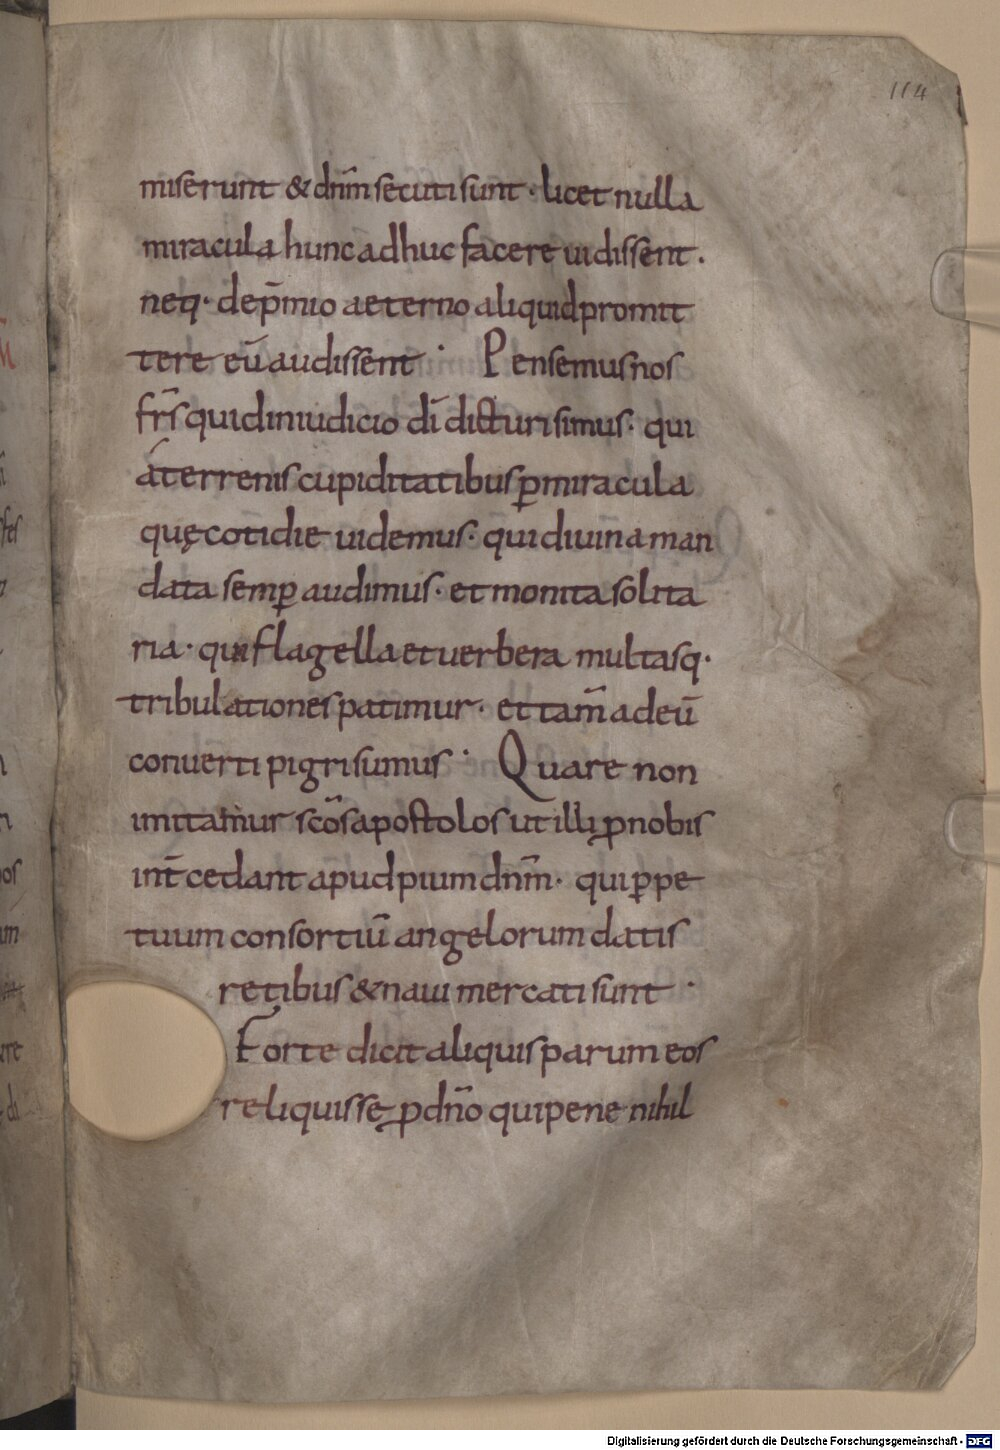 114
miserunt & dnm̄ secuti sunt · licet nulla
miracula hunc adhuc facere uidissent ·
neq· de p̄mio aeterno aliquid promit
tere eū audissent · Pensemus nos
frs̄ quid in iudicio dī dicturi simus · qui
á terrenis cupiditatibus ꝑ miracula
quę cotidie uidemus · qui diuina man
data semꝑ audimus · et monita solita
ria · qui flagella et uerbera multasq·
tribulationes patimur · et tam̄ ad eū
conuerti pigri sumus · Quare non
imitamur sc̄os apostolos ut illi ꝓ nobis
int̄cedant apud pium dnm̄ · qui ꝑpe
tuum consortiū angelorum datis
retibus & naui mercati sunt ·
Forte dicit aliquis parum eos
reliquisse ꝓ dn̄o qui pene nihil
Digitalisierung gefördert durch die Deutsche Forschungsgemeinschaft - DFG